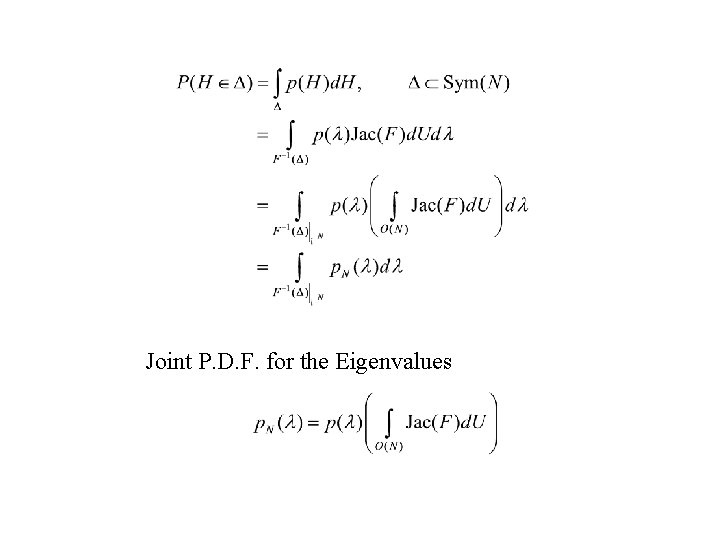 P(H ∈ Δ) = ∫_Δ p(H)dH, Δ ⊂ Sym(N)
= ∫_{F⁻¹(Δ)} p(λ)Jac(F)dUdλ
= ∫_{F⁻¹(Δ)|_{¡ N}} p(λ)(∫_{O(N)} Jac(F)dU)dλ
= ∫_{F⁻¹(Δ)|_{¡ N}} p_N(λ)dλ
Joint P.D.F. for the Eigenvalues
p_N(λ) = p(λ)(∫_{O(N)} Jac(F)dU)